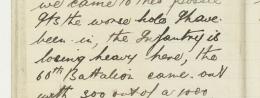 we came to this
Its the worse hole I have
been in, the Infantry is
losing heavy here, the
60th Battalion came out
with 300 out of a 1000